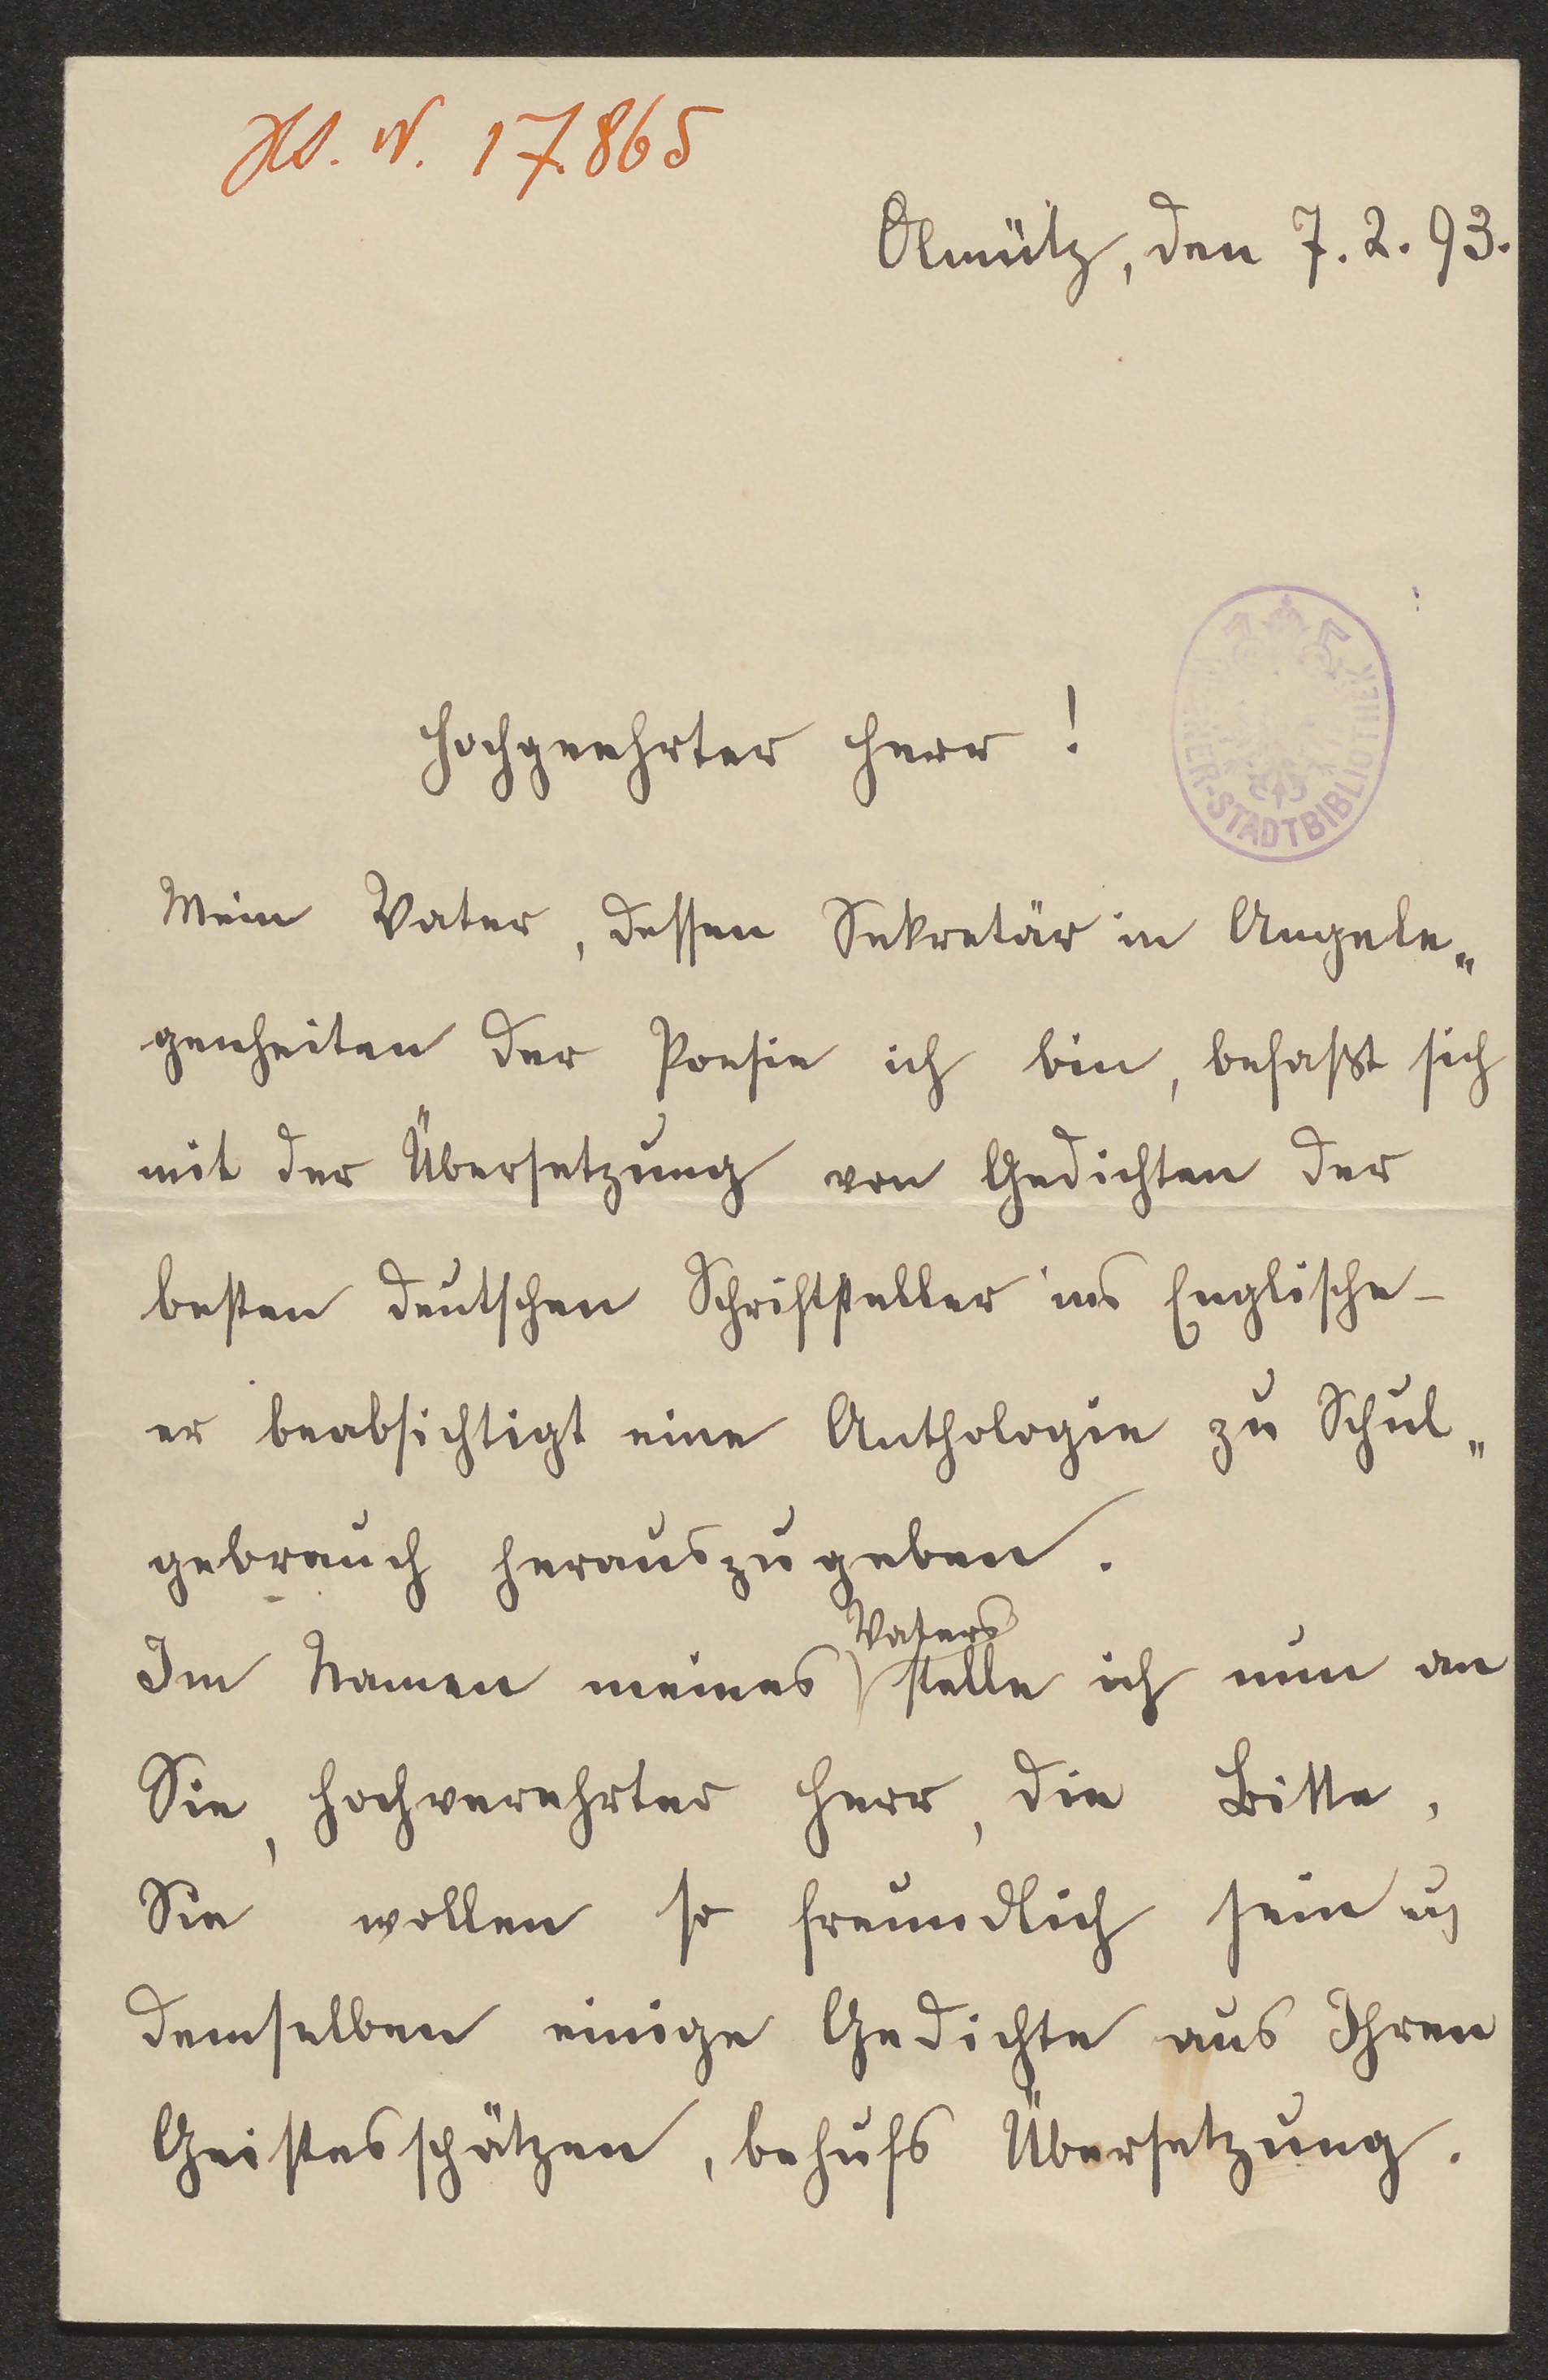 Hs. N. 17865
Olmütz, den 7. 2. 93.
Hochgeehrter Herr !
WIENER-STADTBIBLIOTHEK
Mein Vater, dessen Sekretär in Angele„
genheiten der Poesie ich bin, befaßt sich
mit der Übersetzung von Gedichten der
besten deutschen Schriftsteller ins Englische –
er beabsichtigt eine Anthologie zu Schul„
gebrauch herauszugeben.
Vaters
Im Namen meines stelle ich nun an
Sie, hochverehrter Herr, die Bitte,
Sie wollen so freundlich sein u
demselben einige Gedichte aus Ihren
Geistesschätzen, behufs Übersetzung.